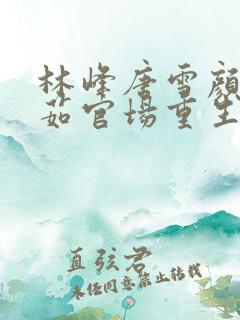 林峰唐雪颜
茹官场重生
直弦君
未经同意禁止转载